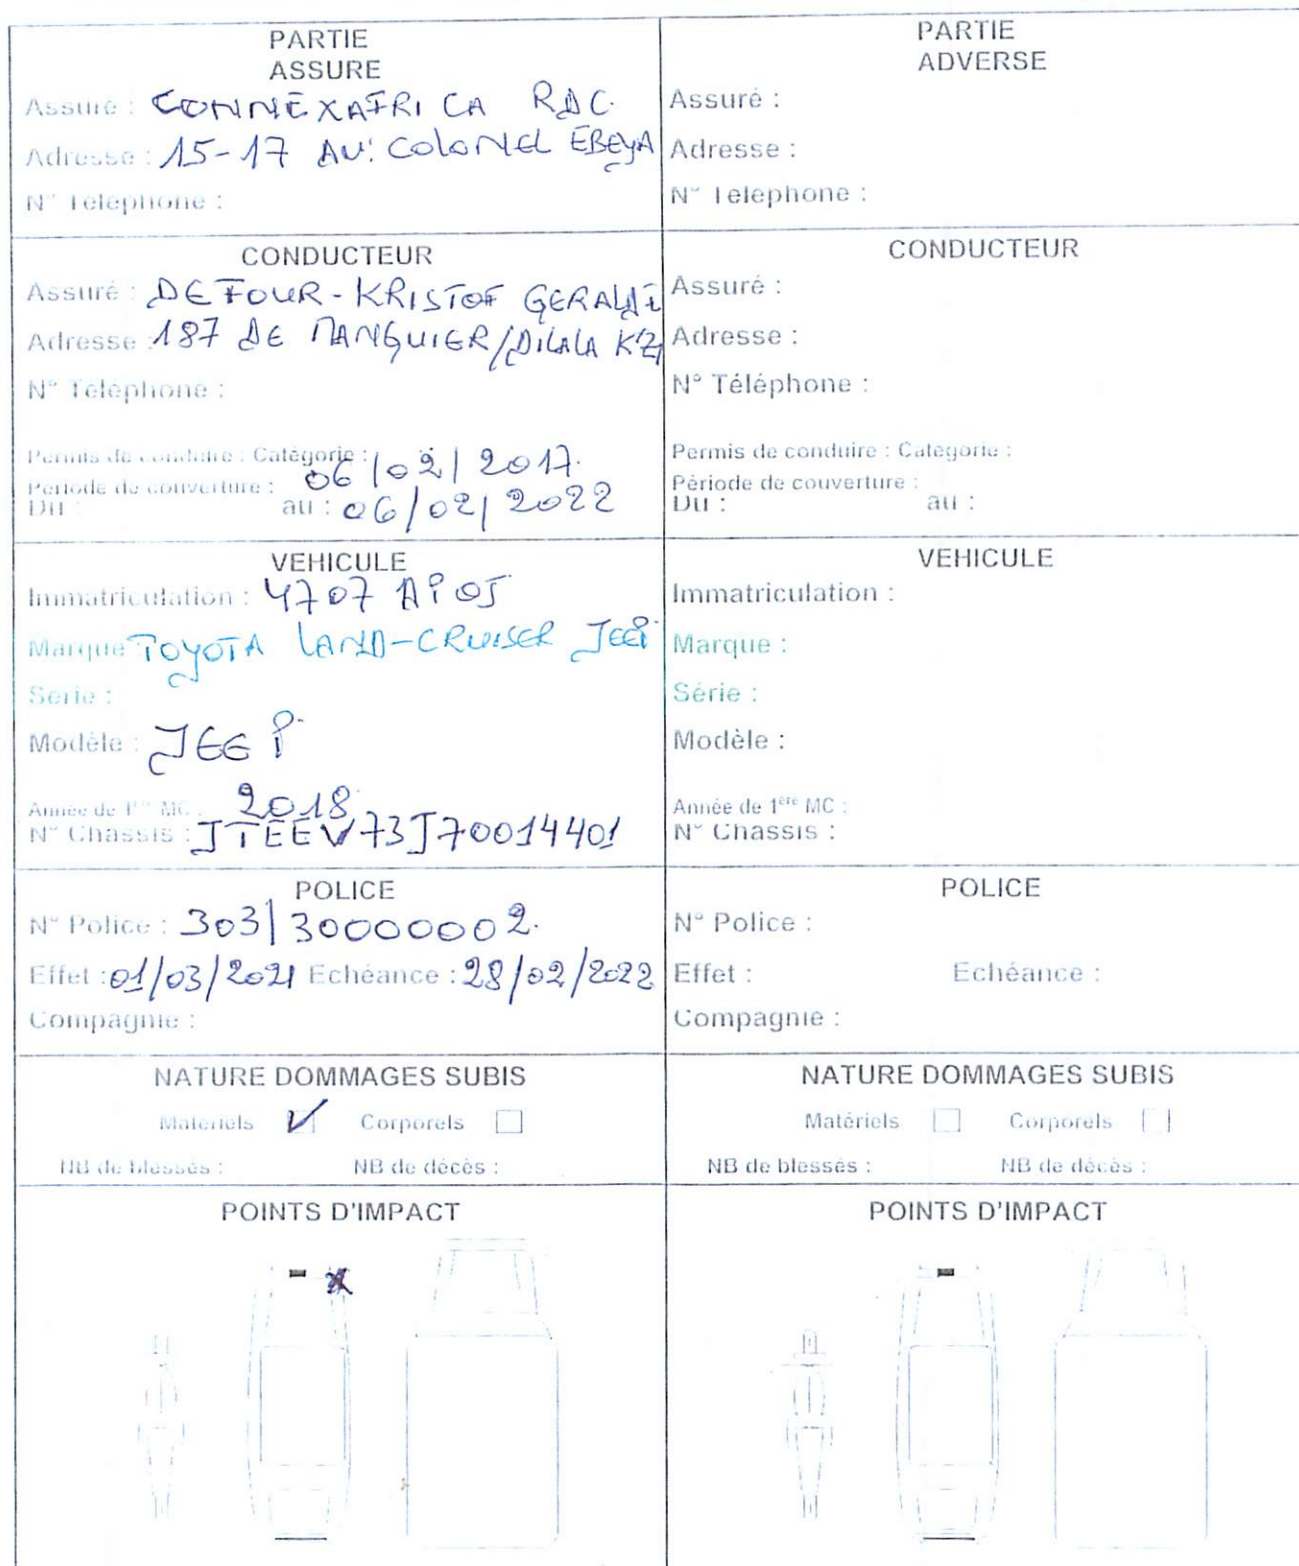 PARTIE
ASSURE
Assuré : CONNEXAFRICA RDC.
Adresse : 15-17 AV: COLONEL EBEYA
N° Telephone :
CONDUCTEUR
Assuré : DEFOUR-KRISTOF GERALDI
Adresse : 187 DE MANGUIER/DILALA KZI
N° Telephone :
Permis de conduire : Catégorie :
06/02/2017.
Periode de couverture :
Du : au : 06/02/2022
VEHICULE
Immatriculation : 4707 AP 05
Marque TOYOTA LAND-CRUISER JEEP
Serie :
Modèle : JEEP.
Année de 1ère MC : 2018
N° Chassis : JTEEV73J70014401
POLICE
N° Police : 303/30000002.
Effet : 01/03/2021 Echéance : 28/02/2022
Compagnie :
NATURE DOMMAGES SUBIS
Materiels Corporels
NB de blessés : NB de décès :
POINTS D'IMPACT
PARTIE
ADVERSE
Assuré :
Adresse :
N° Telephone :
CONDUCTEUR
Assuré :
Adresse :
N° Téléphone :
Permis de conduire : Catégorie :
Période de couverture :
Du : au :
VEHICULE
Immatriculation :
Marque :
Série :
Modèle :
Année de 1ère MC :
N° Chassis :
POLICE
N° Police :
Effet : Echéance :
Compagnie :
NATURE DOMMAGES SUBIS
Matériels Corporels
NB de blessés : NB de décès :
POINTS D'IMPACT